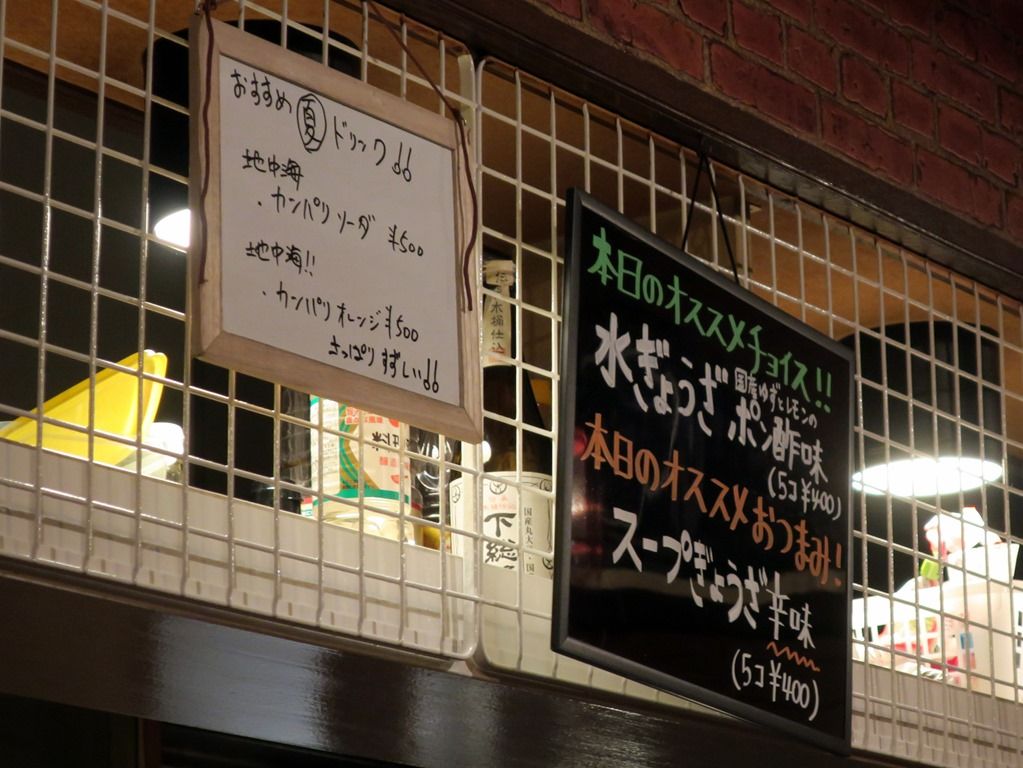 おすすめ 夏 ドリンク!!
地中海
・カンパリソーダ ¥500
地中海!!
・カンパリオレンジ ¥500
さっぱりすずしい!!
本日のオススメチョイス!!
水ぎょうざ 国産ゆずとレモンの ポン酢味
(5コ¥400)
本日のオススメおつまみ!
スープぎょうざ 辛味
(5コ¥400)
木桶仕込
国産丸大
下総